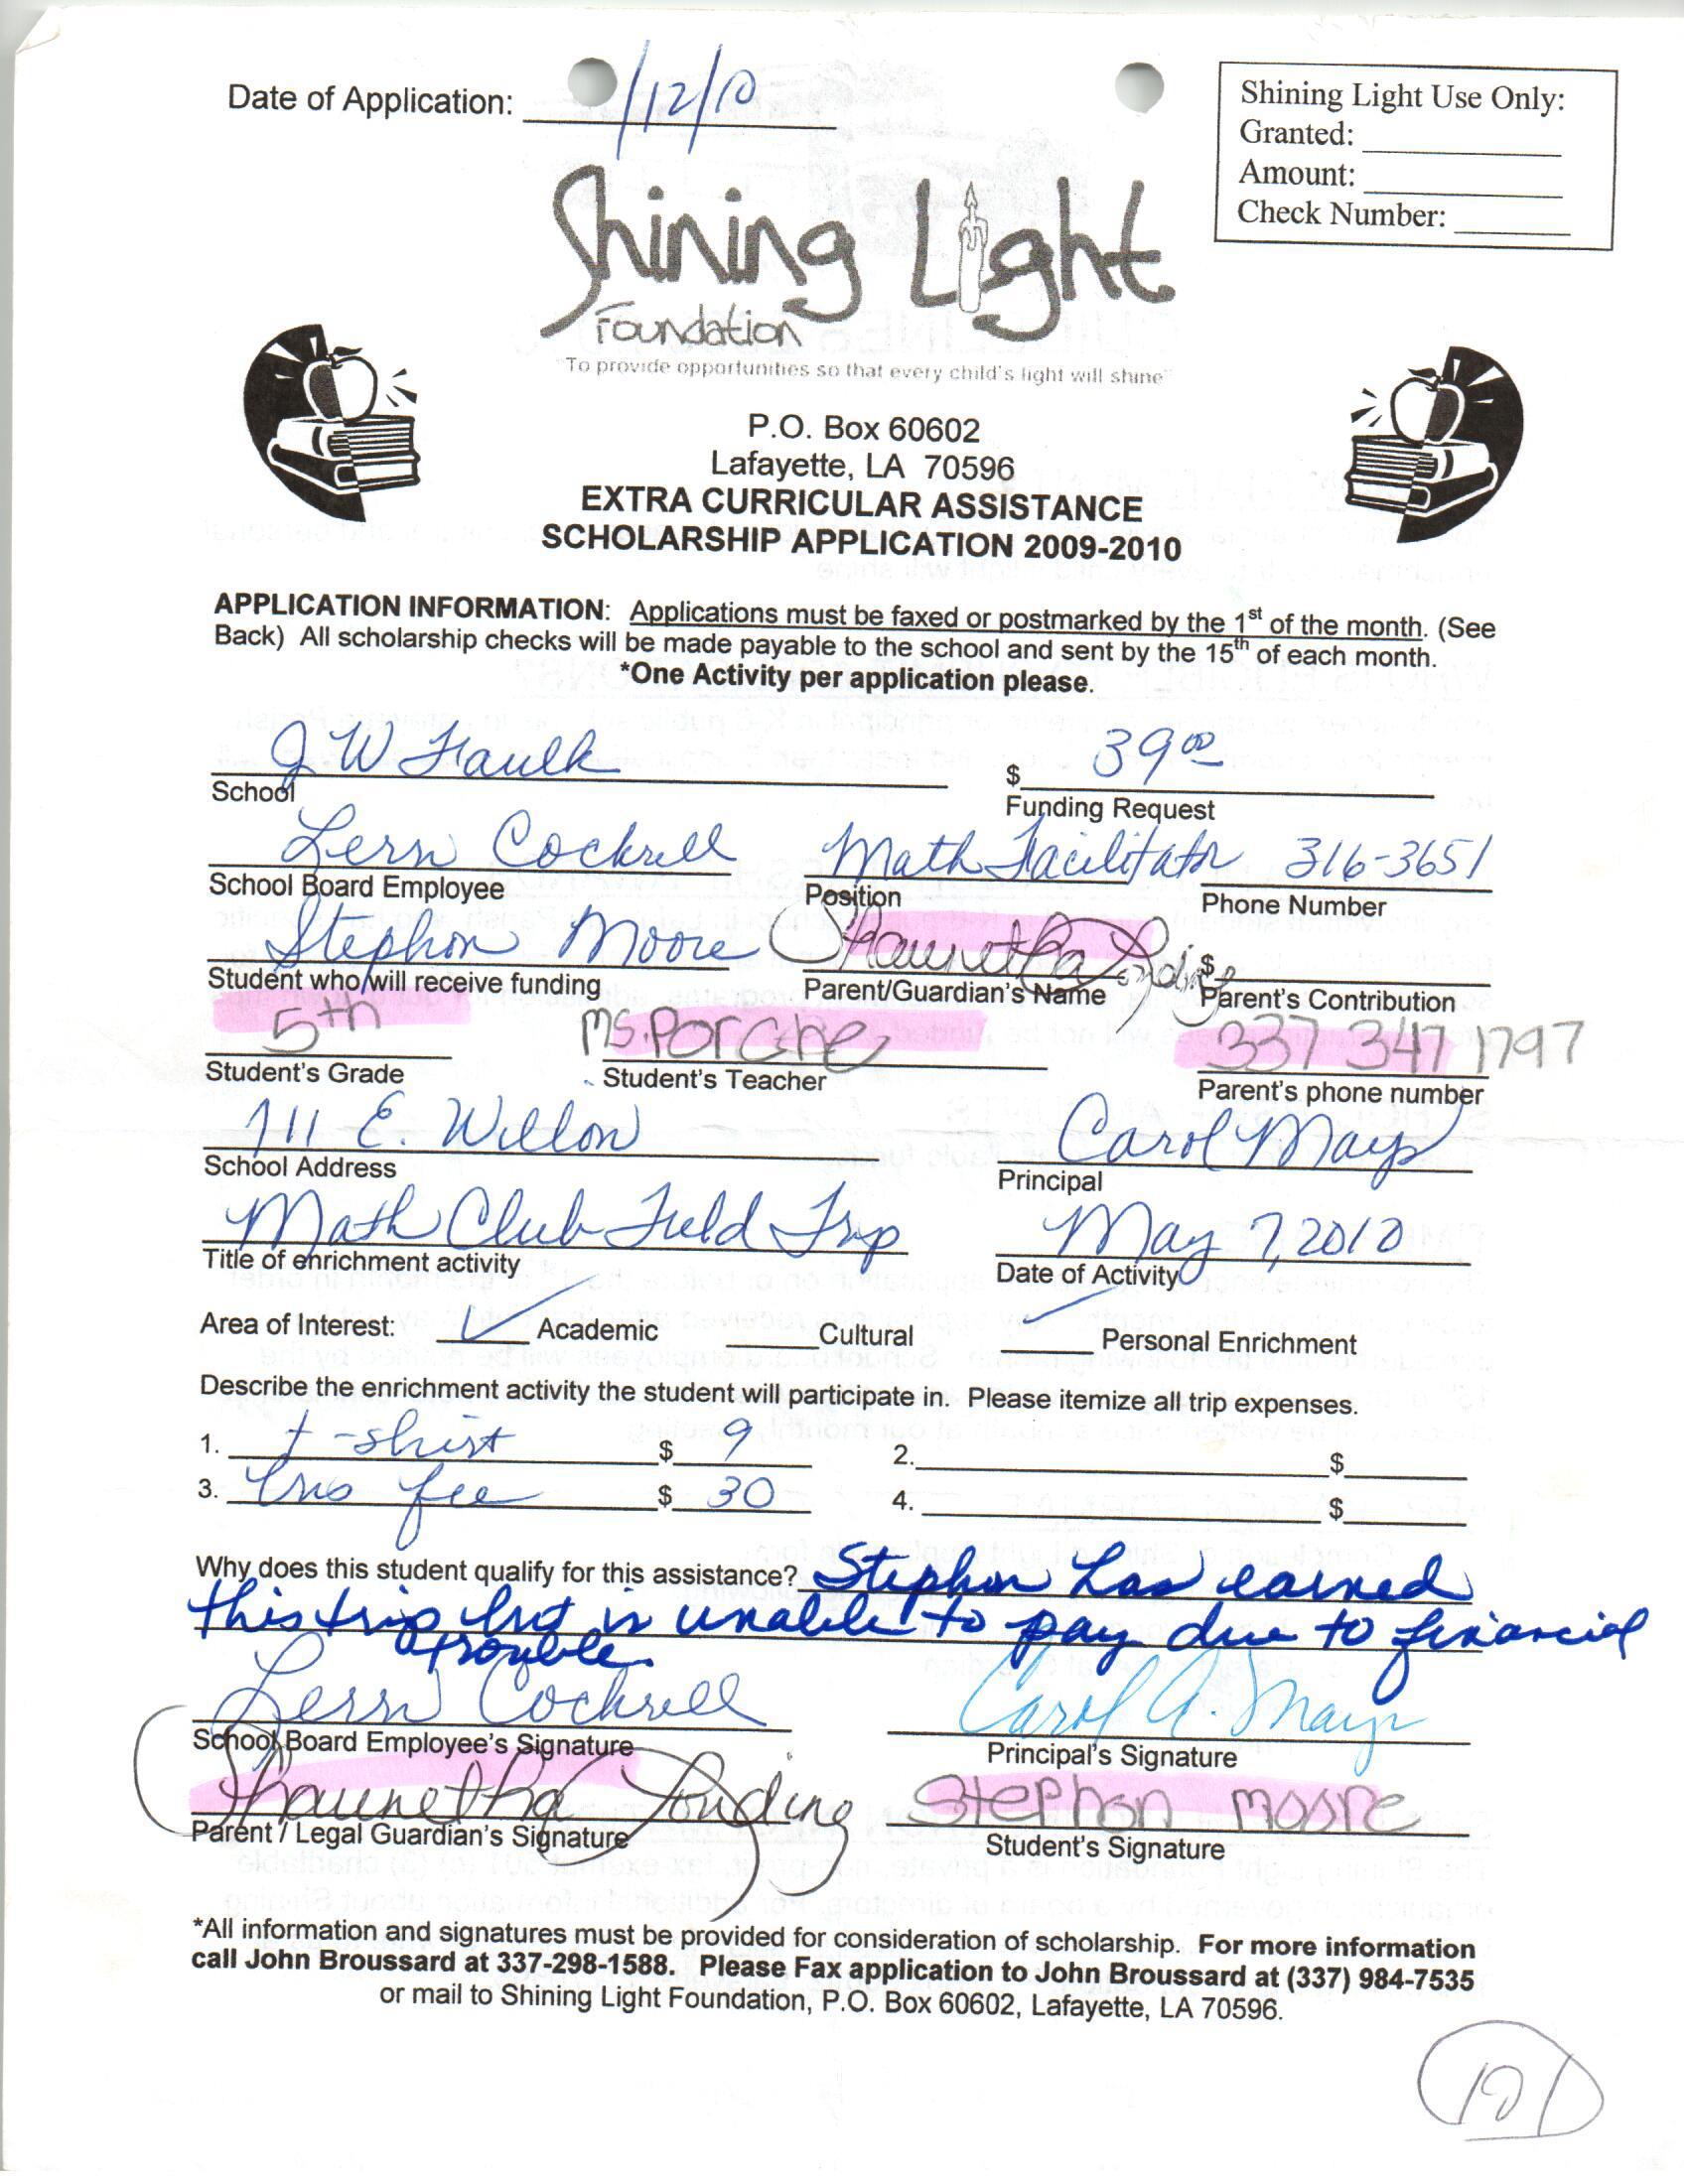 Date of Application: /12/10
Shining Light Use Only:
Granted:
Amount:
Check Number:
Shining Light
Foundation
"To provide opportunities so that every child's light will shine"
P.O. Box 60602
Lafayette, LA 70596
EXTRA CURRICULAR ASSISTANCE
SCHOLARSHIP APPLICATION 2009-2010
APPLICATION INFORMATION: Applications must be faxed or postmarked by the 1st of the month. (See
Back) All scholarship checks will be made payable to the school and sent by the 15th of each month.
*One Activity per application please.
J W Faulk $ 39 00
School Funding Request
Lern Cockrell Math Facilitator 316-3651
School Board Employee Position Phone Number
Stephon Moore Shaunetha $
Student who will receive funding Parent/Guardian's Name Parent's Contribution
5th Ms. Porche 337 347 1797
Student's Grade Student's Teacher Parent's phone number
711 E. Willon Carol Mays
School Address Principal
Math Club Field Trip May 7, 2010
Title of enrichment activity Date of Activity
Area of Interest: ✓ Academic Cultural ✓ Personal Enrichment
Describe the enrichment activity the student will participate in. Please itemize all trip expenses.
1. t-shirt $ 9 2. $
3. fee $ 30 4. $
Why does this student qualify for this assistance? Stephon has earned
this trip but is unable to pay due to financial
trouble.
Lern Cockrell Carol A. Mays
School Board Employee's Signature Principal's Signature
Shaunetha Stephon Moore
Parent / Legal Guardian's Signature Student's Signature
*All information and signatures must be provided for consideration of scholarship. For more information
call John Broussard at 337-298-1588. Please Fax application to John Broussard at (337) 984-7535
or mail to Shining Light Foundation, P.O. Box 60602, Lafayette, LA 70596.